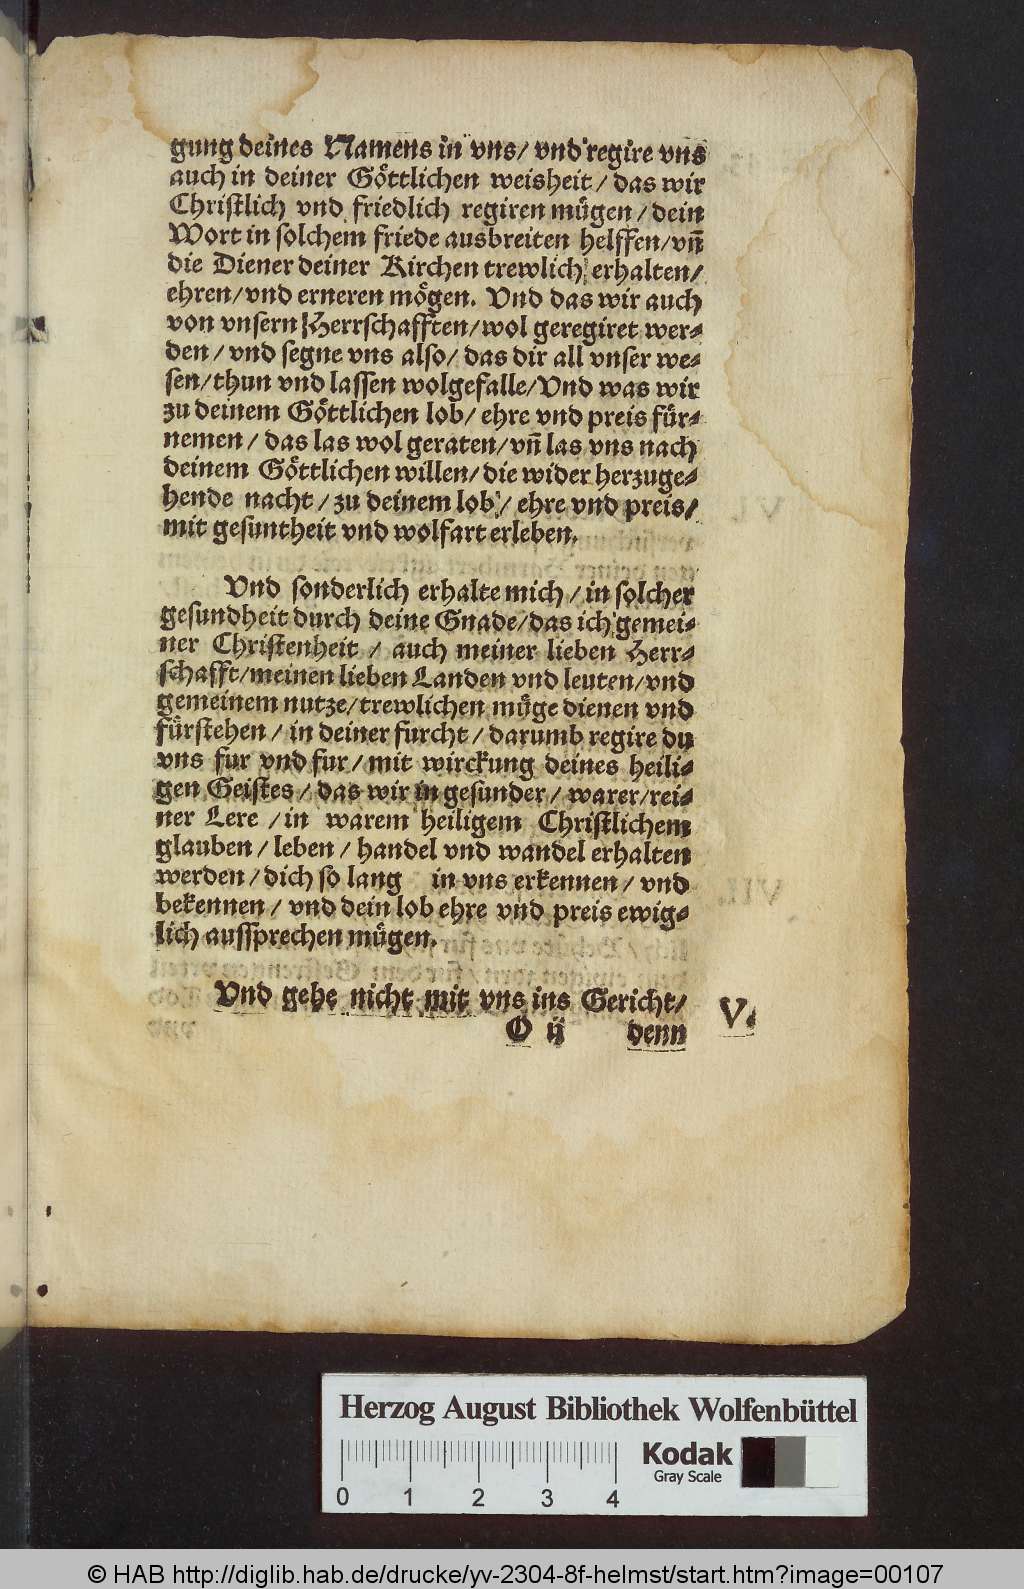 gung deines Namens in vns/ vnd regire vns
auch in deiner Göttlichen weisheit/ das wir
Christlich vnd friedlich regiren mügen/ dein
Wort in solchem friede ausbreiten helffen/ vn̄
die Diener deiner Kirchen trewlich erhalten/
ehren/ vnd erneren mögen. Vnd das wir auch
von vnsern Herrschafften/ wol geregiret wer⸗
den/ vnd segne vns also/ das dir all vnser we⸗
sen/ thun vnd lassen wolgefalle/ Vnd was wir
zu deinem Göttlichen lob/ ehre vnd preis für⸗
nemen/ das las wol geraten/ vn̄ las vns nach
deinem Göttlichen willen/ die wider herzuge⸗
hende nacht/ zu deinem lob/ ehre vnd preis/
mit gesuntheit vnd wolfart erleben.
Vnd sonderlich erhalte mich/ in solcher
gesundheit durch deine Gnade/ das ich gemei⸗
ner Christenheit/ auch meiner lieben Herr⸗
schafft/ meinen lieben Landen vnd leuten/ vnd
gemeinem nutze/ trewlichen müge dienen vnd
fürstehen/ in deiner furcht/ darumb regire du
vns fur vnd fur/ mit wirckung deines heili⸗
gen Geistes/ das wir in gesunder/ warer/ rei⸗
ner Lere/ in warem heiligem Christlichem
glauben/ leben/ handel vnd wandel erhalten
werden/ dich so lang in vns erkennen/ vnd
bekennen/ vnd dein lob ehre vnd preis ewig⸗
lich aussprechen mügen.
Vnd gehe nicht mit vns ins Gericht/ V.
O ij denn
Herzog August Bibliothek Wolfenbüttel
Kodak
Gray Scale
0 1 2 3 4
© HAB http://diglib.hab.de/drucke/yv-2304-8f-helmst/start.htm?image=00107